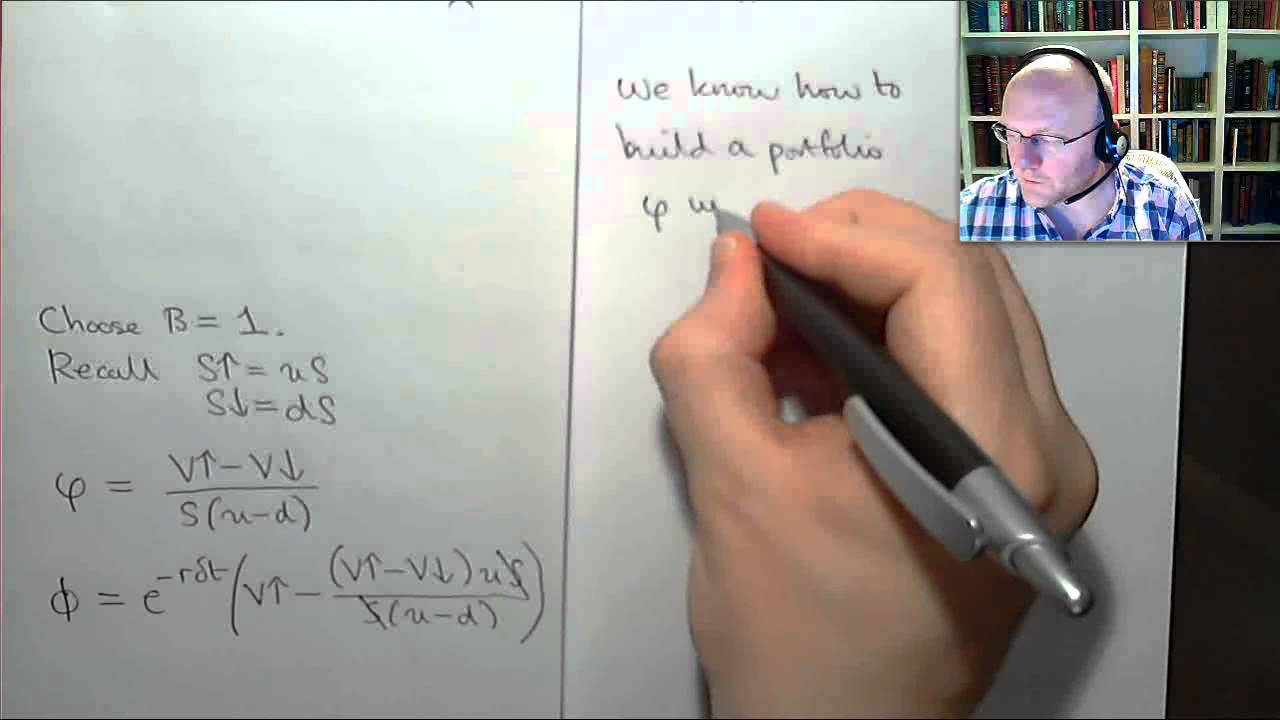 Choose B = 1.
Recall S↑ = uS
S↓ = dS
φ = V↑ - V↓ / S(u-d)
ϕ = e^-rδt (V↑ - (V↑-V↓)uS / S(u-d))
We know how to
build a portfolio
φ